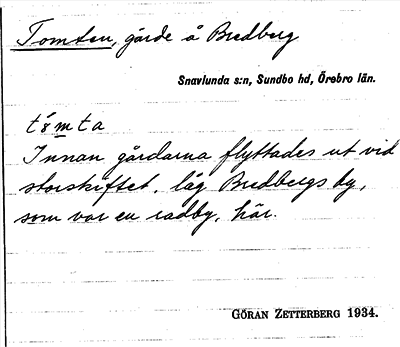 Tomten, gärde å Bredberg
Snavlunda s:n, Sundbo hd, Örebro län.
tòmta
Innan gårdarna flyttades ut vid
storskiftet, låg Bredbergs by,
som var en radby, här.
GÖRAN ZETTERBERG 1934.